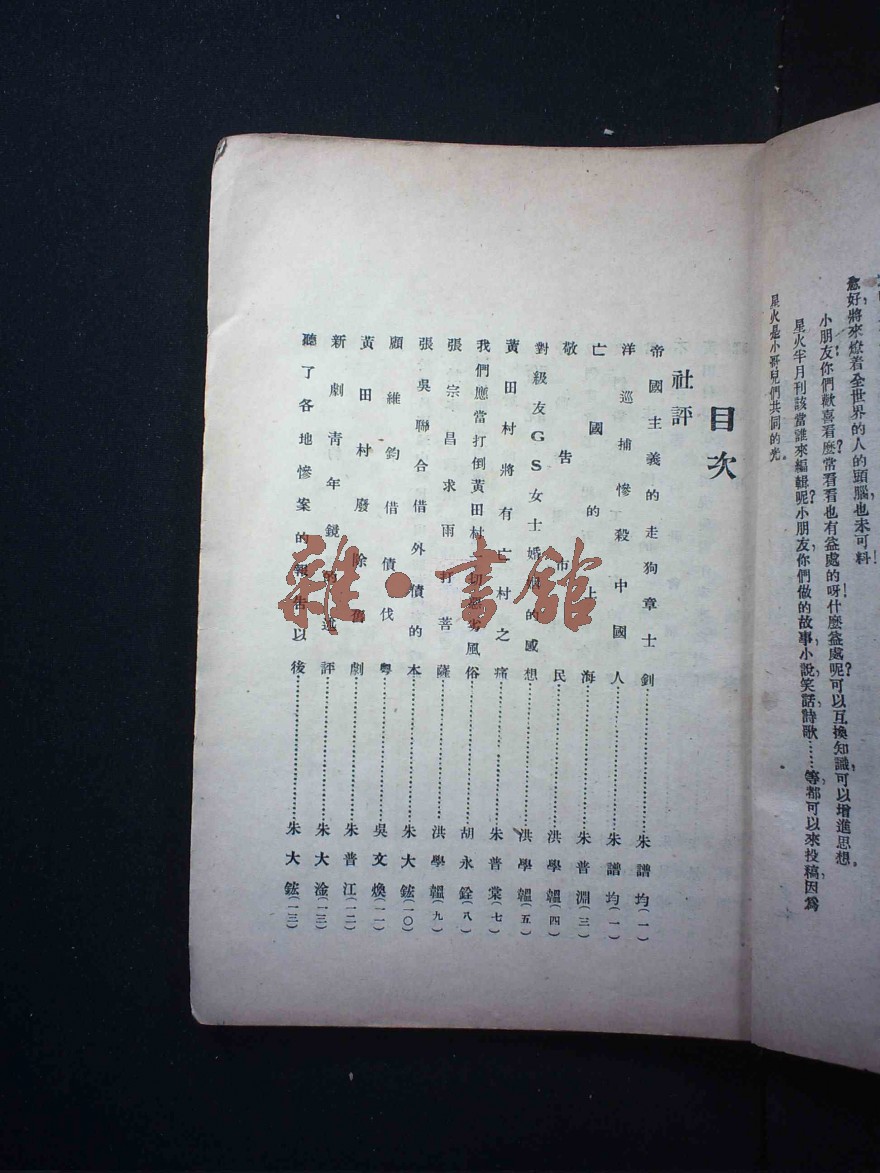 意,好將來燎着全世界的人的頭腦,也未可料!
小朋友你們歡喜看麼?常看看也有益處的呀!什麼益處呢?可以互換知識,可以增進思想。
星火半月刊該當誰來編輯呢?小朋友,你們做的故事,小說,笑話,詩歌……等,都可以來投稿,因爲
星火是小哥兒們共同的光。
目次
社評
帝國主義的走狗章士釗……朱譜均(一)
洋巡捕慘殺中國人……朱譜均(一)
亡國的上海……朱普淵(三)
敬告市民……洪學韞(四)
對級友GS女士婚姻的感想……洪學韞(五)
黃田村將有亡村之痛……朱普棠(七)
我們應當打倒黃田村一切惡劣風俗……胡永銓(八)
張宗昌求雨打菩薩……洪學韞(九)
張吳聯合借外債的本……朱大鋐(一〇)
顧維鈞借債伐粵……吳文煥(一一)
黃田村廢除舊劇……朱普江(一二)
新劇靑年鏡的述評……朱大淦(一三)
聽了各地慘案的報告以後……朱大鋐(一三)
雜·書館